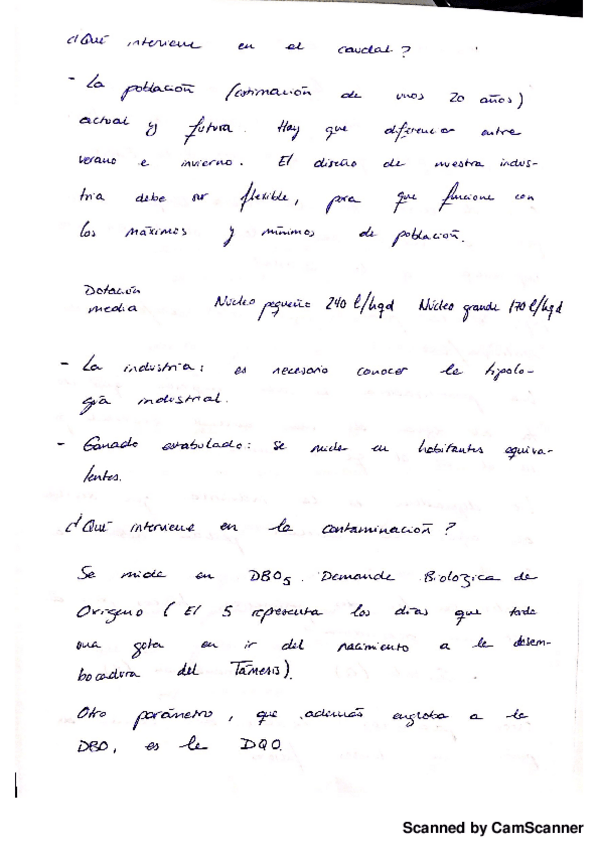 ¿Qué interviene en el caudal?
- La población (estimación de unos 20 años)
actual y futura. Hay que diferenciar entre
verano e invierno. El diseño de nuestra indus-
tria debe ser flexible, para que funcione con
los máximos y mínimos de población.
Dotación
media Núcleo pequeño 240 l/hqd Núcleo grande 170 l/hqd
- La industria: es necesario conocer la tipolo-
gía industrial.
- Ganado estabulado: se mide en habitantes equiva-
lentes.
¿Qué interviene en la contaminación?
Se mide en DBO5. Demanda Biológica de
Oxígeno (El 5 representa los días que tarda
una gota en ir del nacimiento a la desem-
bocadura del Támesis).
Otro parámetro, que además engloba a la
DBO, es la DQO.
Scanned by CamScanner